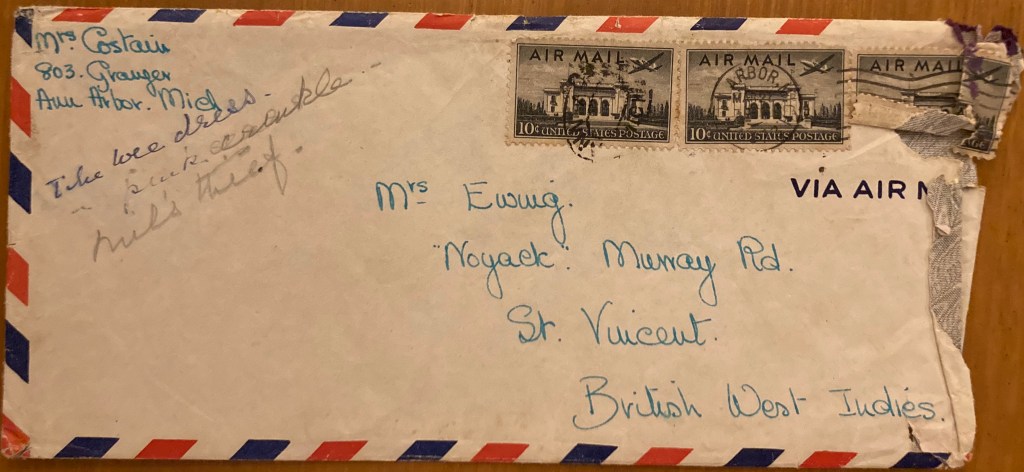 Mrs Costain
803. Granger
Ann Arbor. Mich
The wee dress.
AIR MAIL
10¢ UNITED STATES POSTAGE
AIR MAIL
ARBOR
10¢ UNITED STATES POSTAGE
AIR MAIL
VIA AIR M
Mrs Ewing.
"Noyack". Murray Rd.
St. Vincent.
British West Indies.